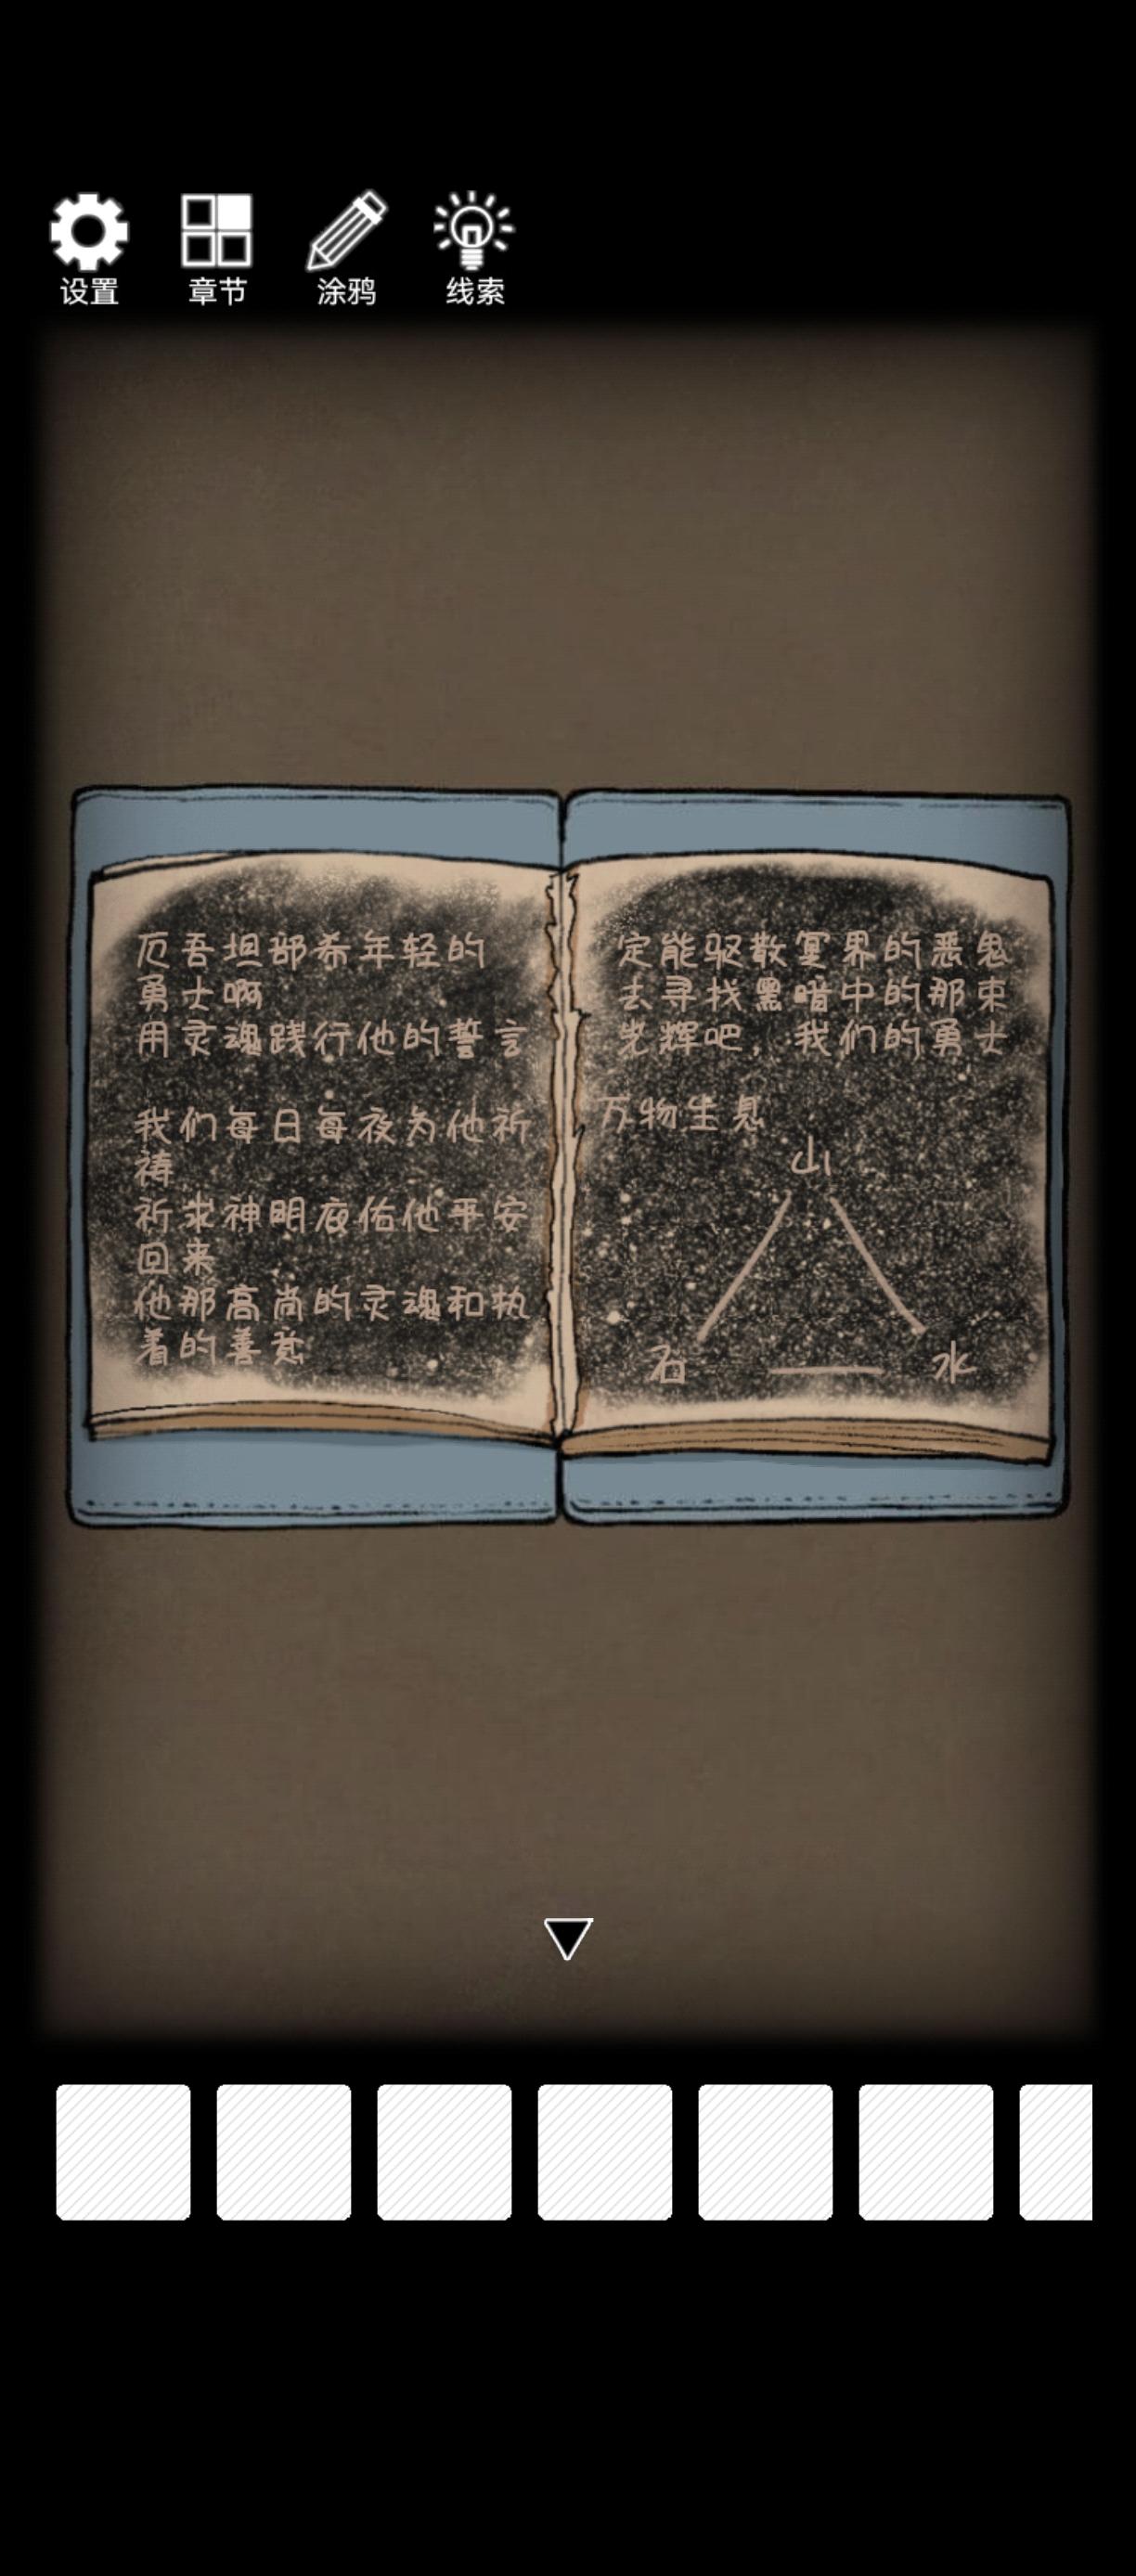 设置 章节 涂鸦 线索
厄吾坦部希年轻的
勇士啊
用灵魂践行他的誓言
我们每日每夜为他祈
祷
祈求神明庇佑他平安
回来
他那高尚的灵魂和执
着的善意
定能驱散冥界的恶鬼
去寻找黑暗中的那束
光辉吧，我们的勇士
万物生息
山
石 水